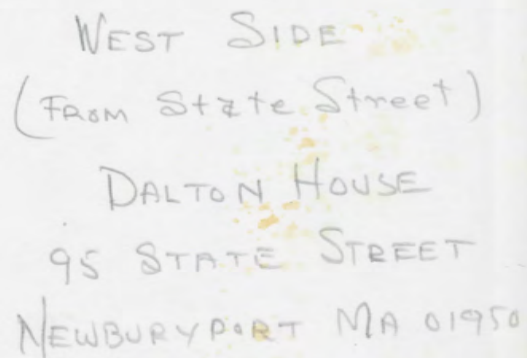 WEST SIDE
(FROM State Street)
DALTON HOUSE
95 STATE STREET
NEWBURYPORT MA 01950